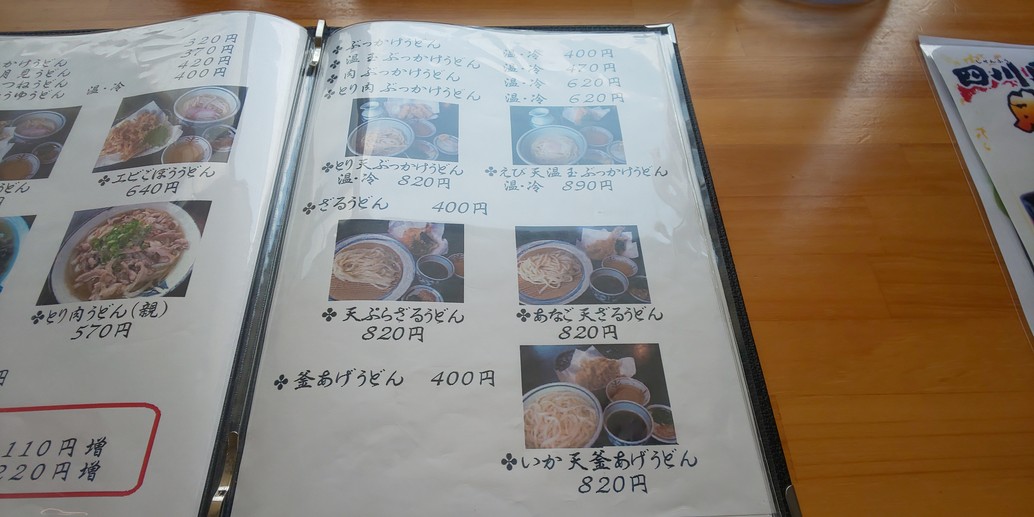 320円
かけうどん 370円
月見うどん 420円
つねうどん 400円
うゆうどん 温・冷
うどん
円
✤エビごぼううどん
640円
✤とり肉うどん(親)
570円
円
110円増
220円増
✤ぶっかけうどん 温・冷 400円
✤温玉ぶっかけうどん 温・冷 470円
✤肉ぶっかけうどん 温・冷 620円
✤とり肉ぶっかけうどん 温・冷 620円
✤とり天ぶっかけうどん
温・冷 820円
✤えび天温玉ぶっかけうどん
温・冷 890円
✤ざるうどん 400円
✤天ぷらざるうどん
820円
✤あなご天ざるうどん
820円
✤釜あげうどん 400円
✤いか天釜あげうどん
820円
四川